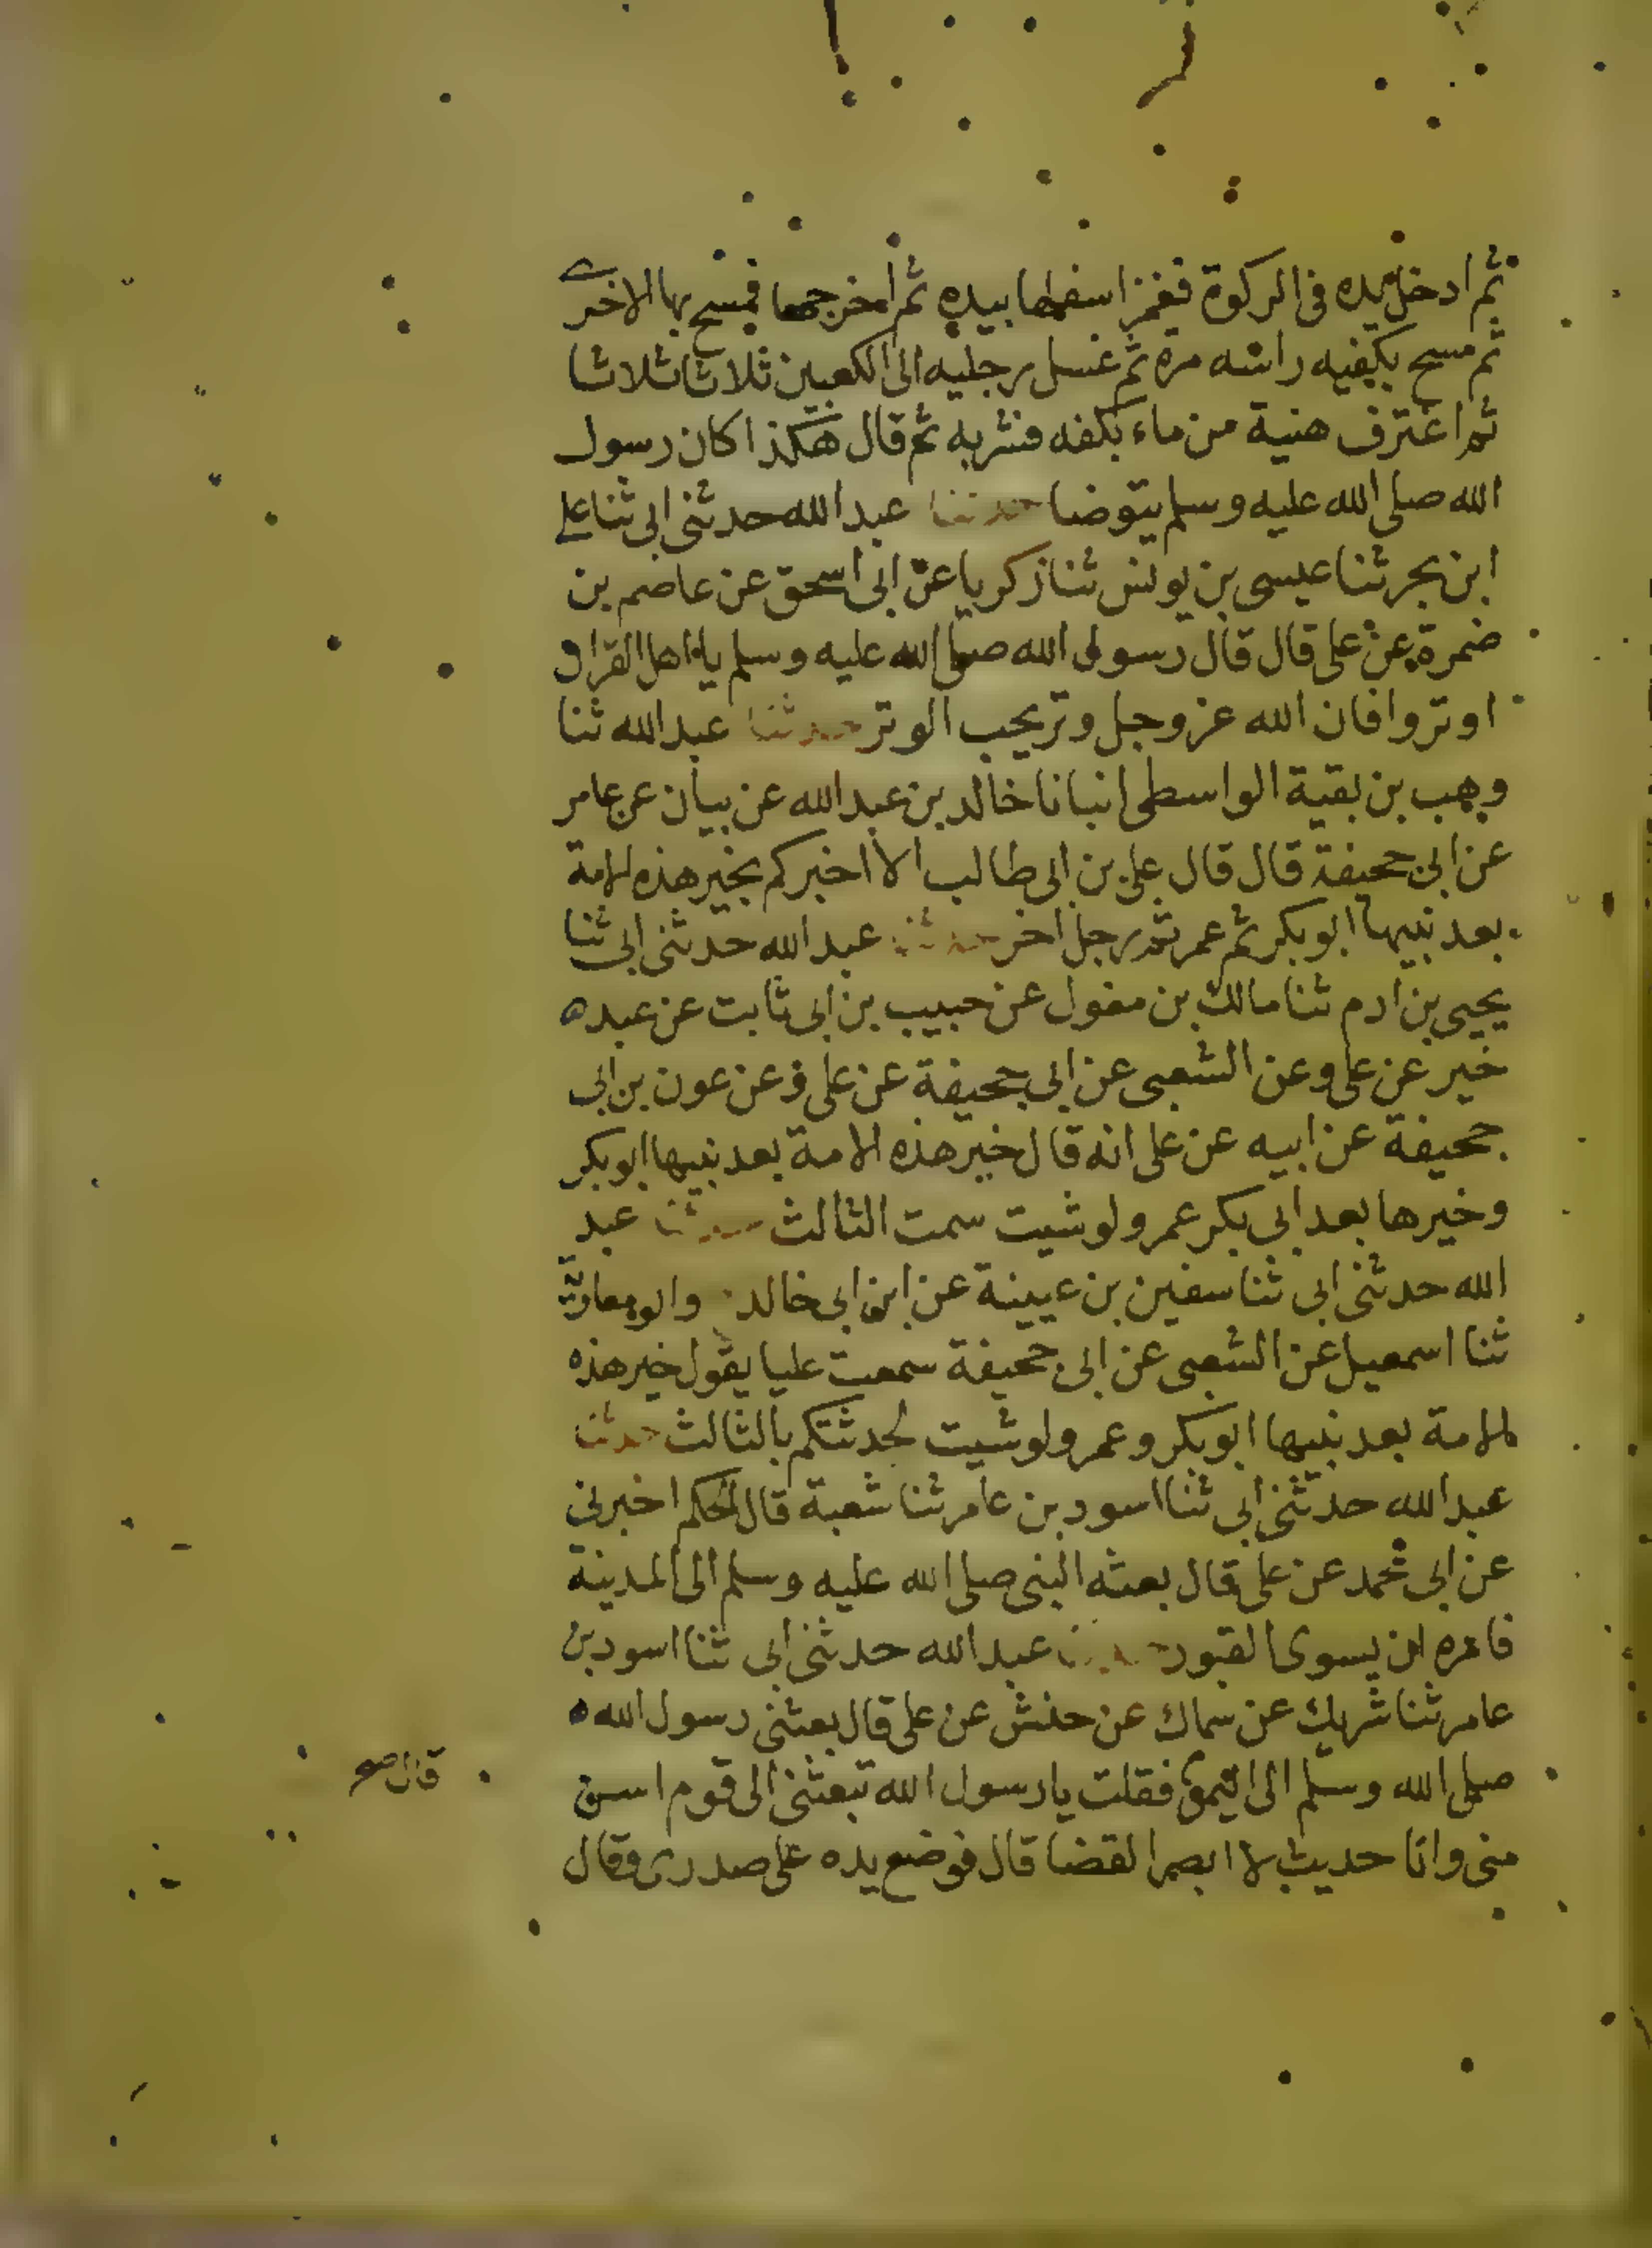 ثم ادخل يده فى الركوة فغمز اسفلها بيده ثم اخرجها فمسح بها الاخرى
ثم مسح بكفيه راسه مرة ثم غسل رجليه الى الكعبين ثلاثا ثلاثا
ثم اغترف هنية من ماء بكفه فشربه ثم قال هكذا كان رسول
الله صلى الله عليه وسلم يتوضا حدثنا عبد الله حدثنى ابى ثنا على
ابن بحر ثنا عيسى بن يونس ثنا زكريا عن ابى اسحق عن عاصم بن
ضمرة عن على قال قال رسول الله صلى الله عليه وسلم يا اهل القران
اوتروا فان الله عز وجل وتر يحب الوتر حدثنا عبد الله ثنا
وهب بن بقية الواسطى انبانا خالد بن عبد الله عن بيان عن عامر
عن ابى جحيفة قال قال على بن ابى طالب الا اخبركم بخير هذه الامة
بعد نبيها ابو بكر ثم عمر ثم رجل اخر حدثنا عبد الله حدثنى ابى ثنا
يحيى بن ادم ثنا مالك بن مغول عن حبيب بن ابى ثابت عن عبد ه
خير عن على وعن الشعبى عن ابى جحيفة عن على وعن عون بن ابى
جحيفة عن ابيه عن على انه قال خير هذه الامة بعد نبيها ابو بكر
وخيرها بعد ابى بكر عمر ولو شيت سمت الثالث حدثنا عبد
الله حدثنى ابى ثنا سفين بن عيينة عن ابن ابى خالد وابو معاوية
ثنا اسمعيل عن الشعبى عن ابى جحيفة سمعت عليا يقول خير هذه
الامة بعد نبيها ابو بكر وعمر ولو شيت لحدثتكم بالثالث حدثنا
عبد الله حدثنى ابى ثنا اسود بن عامر ثنا شعبة قال الحكم اخبرنى
عن ابى محمد عن على قال بعثه النبى صلى الله عليه وسلم الى المدينة
فامره ان يسوى القبور حدثنا عبد الله حدثنى ابى ثنا اسود بن
عامر ثنا شريك عن سماك عن حنش عن على قال بعثنى رسول الله ه
صلى الله وسلم الى اليمن فقلت يا رسول الله تبعثنى الى قوم اسن
قال صح
منى وانا حديث لا ابصر القضا قال فوضع يده على صدرى وقال